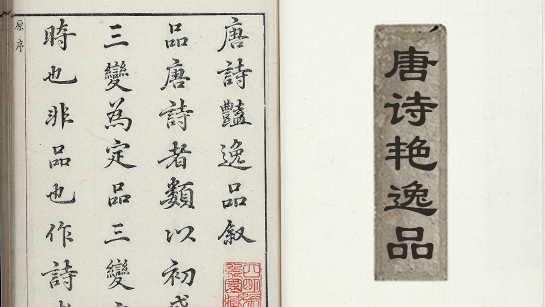 唐詩豔逸品叙
品唐詩者類以初盛
三變為定品三變
時也非品也作詩
原序
唐诗艳逸品